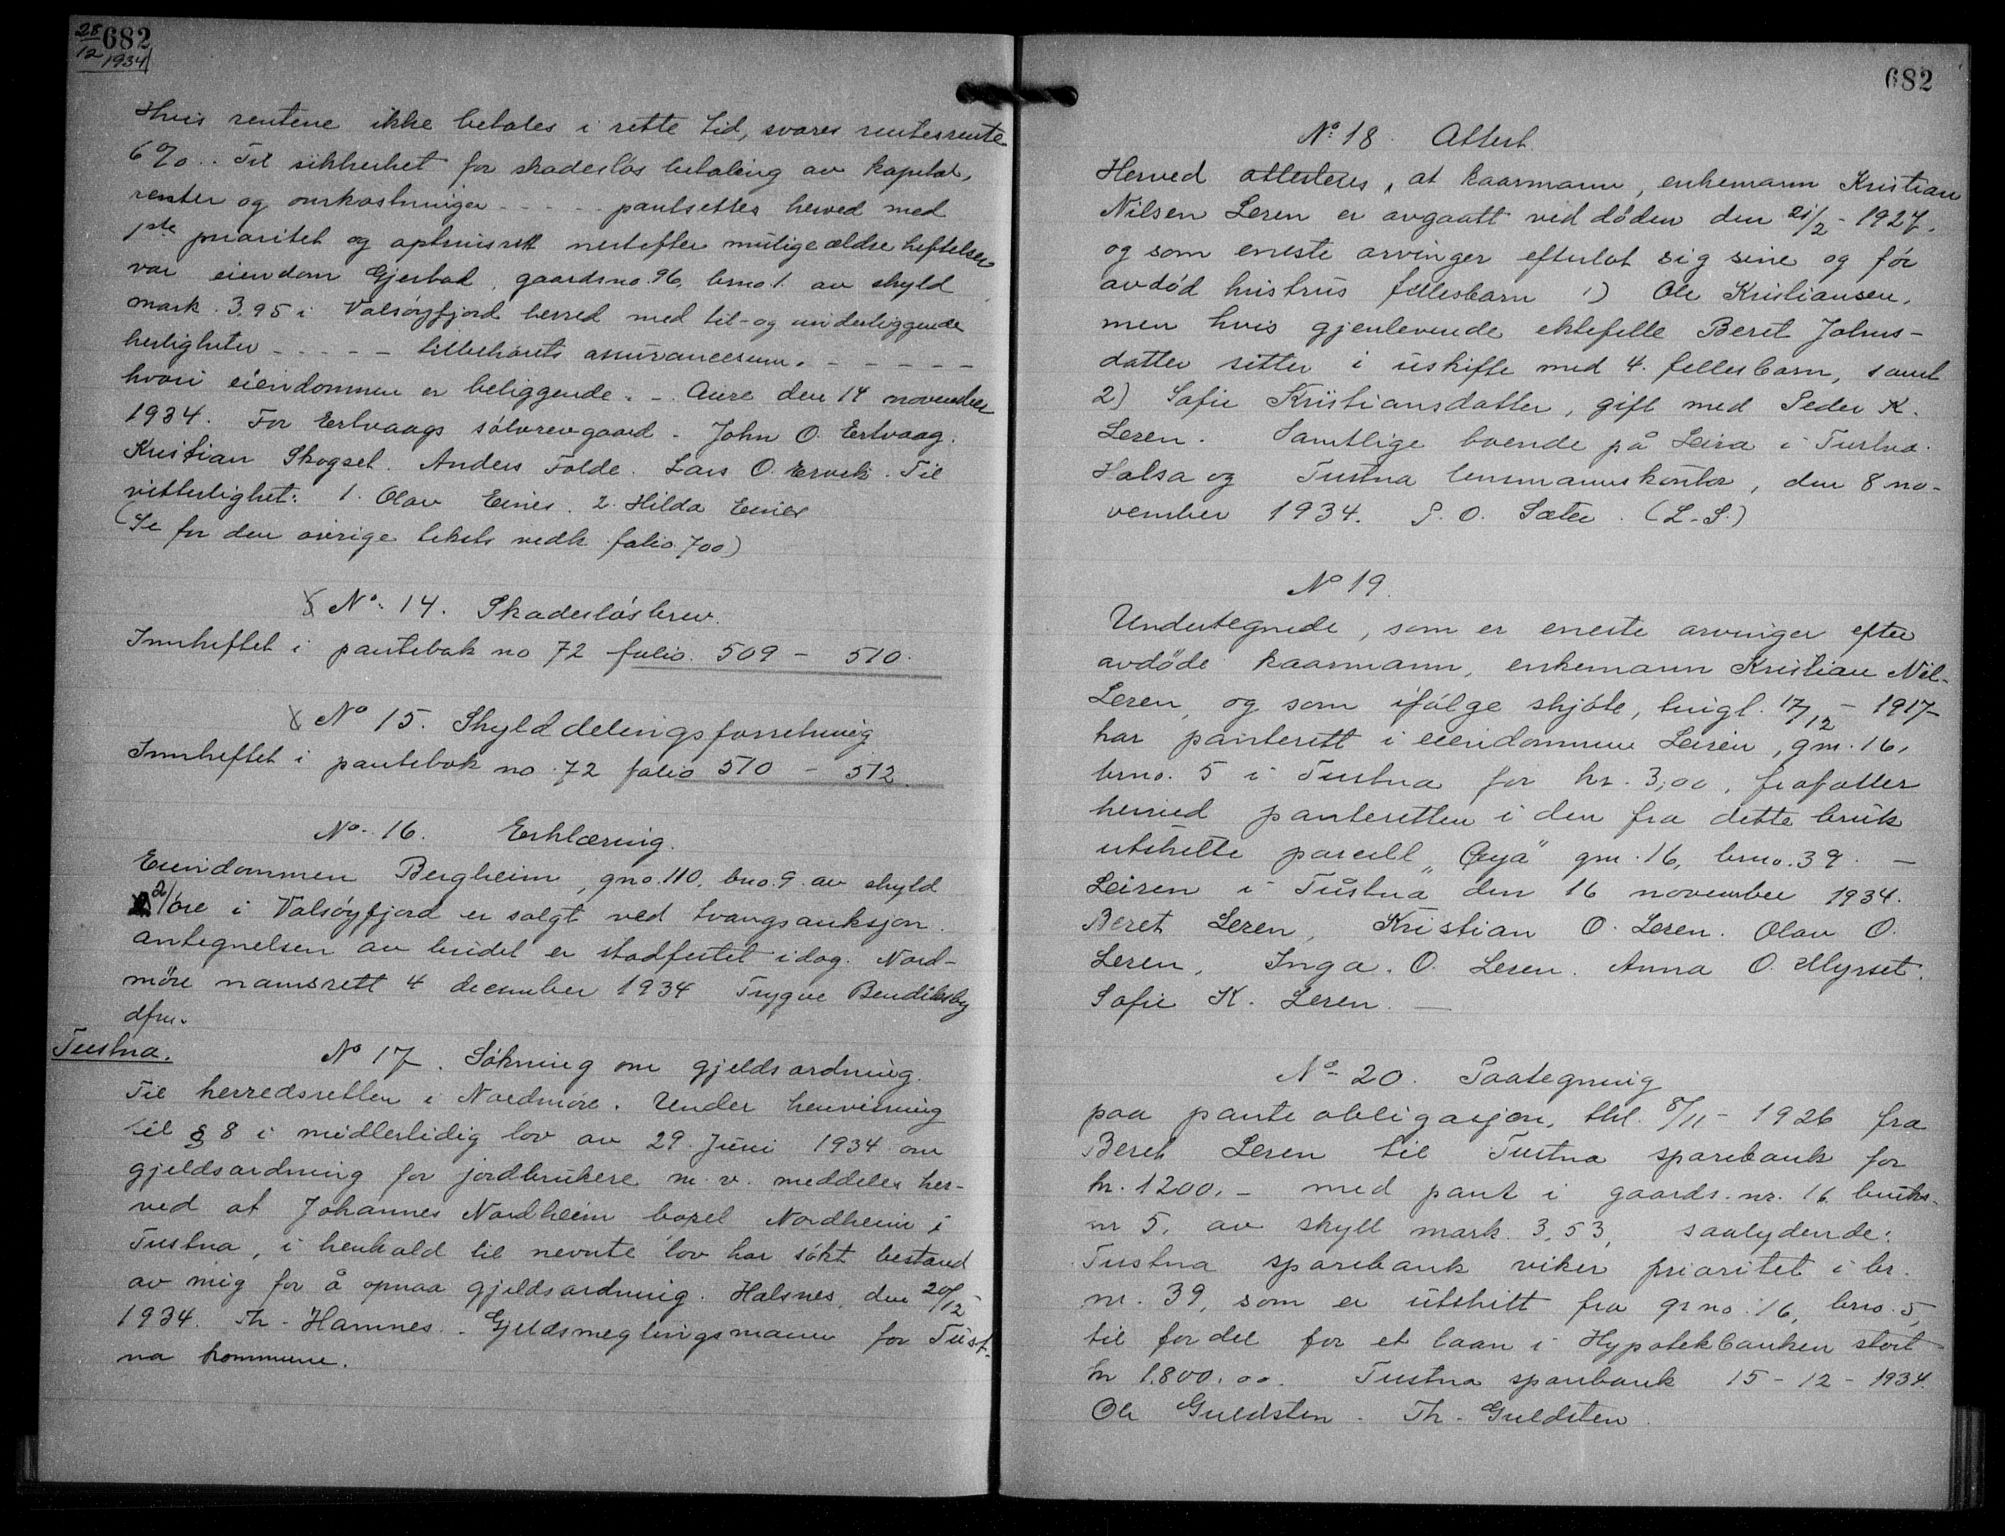 28/12 1934
682
Hvis rentene ikke betales i rette tid, svares rentesrente
6%.. Til sikkerhet for skadesløs betaling av kapital,
renter og omkostninger - - - - - pantsettes herved med
1ste prioritet og oprinsrett nestefter mulige ældre heftelser
vor eiendom Gjerbad, gaardsno. 96, brno. 1. av skyld
mark. 3,95 i Valsøyfjord herred med til- og underliggende
herligheter - - - - - tilbehørets assurancesum. - - - - - -
hvori eiendommen er beliggende. - Aure den 14 november
1934. For Ertvaags sølvrevgaard - John O. Ertvaag.
Kristian Skogset. Anders Folde. Lars O. Ervik. Til
vitterlighet: 1. Olav Eines. 2. Hilda Eines
(Se for den øvrige tekst vedk folio 700)
No. 14. Skadesløsbrev.
Innheftet i pantebok no 72 folio. 509 - 510.
No 15. Skylddelingsforretning
Innheftet i pantebok no. 72 folio 510 - 512.
No. 16. Erklæring.
Eiendommen Bergheim, gno. 110, bno. 9. av skyld
2/øre i Valsøyfjord er solgt ved tvangsauksjon.
antegnelsen av budet er stadfestet idag. Nord-
møre namsrett 4 december 1934 Trygve Bendiksby
dfm.
Tustna.
No 17. Søkning om gjeldsordning.
Til herredsretten i Nordmøre. Under henvisning
til § 8 i midlertidig lov av 29. Juni 1934 om
gjeldsordning for jordbrukere m. v. meddeles her-
ved at Johannes Nordheim bopel Nordheim i
Tustna, i henhold til nevnte lov har søkt bestand
av mig for å opnaa gjeldsordning. Halsnes, den 20/12
1934. Th. Hamnes. - Gjeldsmeglingsmann for Tust-
na kommune.
682
No. 18. Attest
Herved attesteres, at kaarmann, enkemann Kristian
Nilsen Leren er avgaatt ved døden den 21/2 - 1927.
og som eneste arvinger efterlot sig sine og før
avdød hustrus fellesbarn 1) Ole Kristiansen,
men hvis gjenlevende ektefelle Beret Johns-
datter sitter i uskifte med 4. fellesbarn, samt
2) Sofie Kristiansdatter, gift med Peder K.
Leren. Samtlige boende på Leira i Tustna.
Halsa og Tustna lensmannskontor, den 8 no-
vember 1934. P. O. Sæter. (L.S.)
No 19.
Undertegnede, som er eneste arvinger efter
avdøde kaarmann, enkemann Kristian Nil-
Leren, og som ifølge skjøte, tingl. 17/12 - 1917
har panterett i eiendommen Leiren, gnr. 16,
brno. 5 i Tustna for kr. 3,00, frafaller
herved panteretten i den fra dette bruk
utskilte parcell "Øyå" gnr. 16, brno. 39. -
Leiren i Tustna den 16 november 1934.
Beret Leren, Kristian O. Leren. Olav O.
Leren. Inga. O. Leren. Anna O. Myrset.
Sofie K. Leren. -
No. 20. Paategning
paa panteobligasjon, tgl. 8/11 - 1926 fra
Beret Leren til Tustna sparebank for
kr. 1200,- med pant i gaards. nr. 16 bruks-
nr 5, av skyll mark. 3,53, saalydende:
Tustna sparebank viker prioritet i br.
nr. 39, som er utskilt fra grno. 16, brno. 5,
til fordel for et laan i Hypotekbanken stort
kr 1800,00. Tustna sparebank 15-12-1934.
Ole Guldsten. Th. Guldsten.